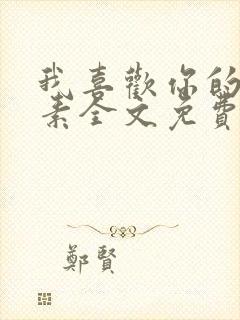 我喜歡你的
素全文免費
鄭賢